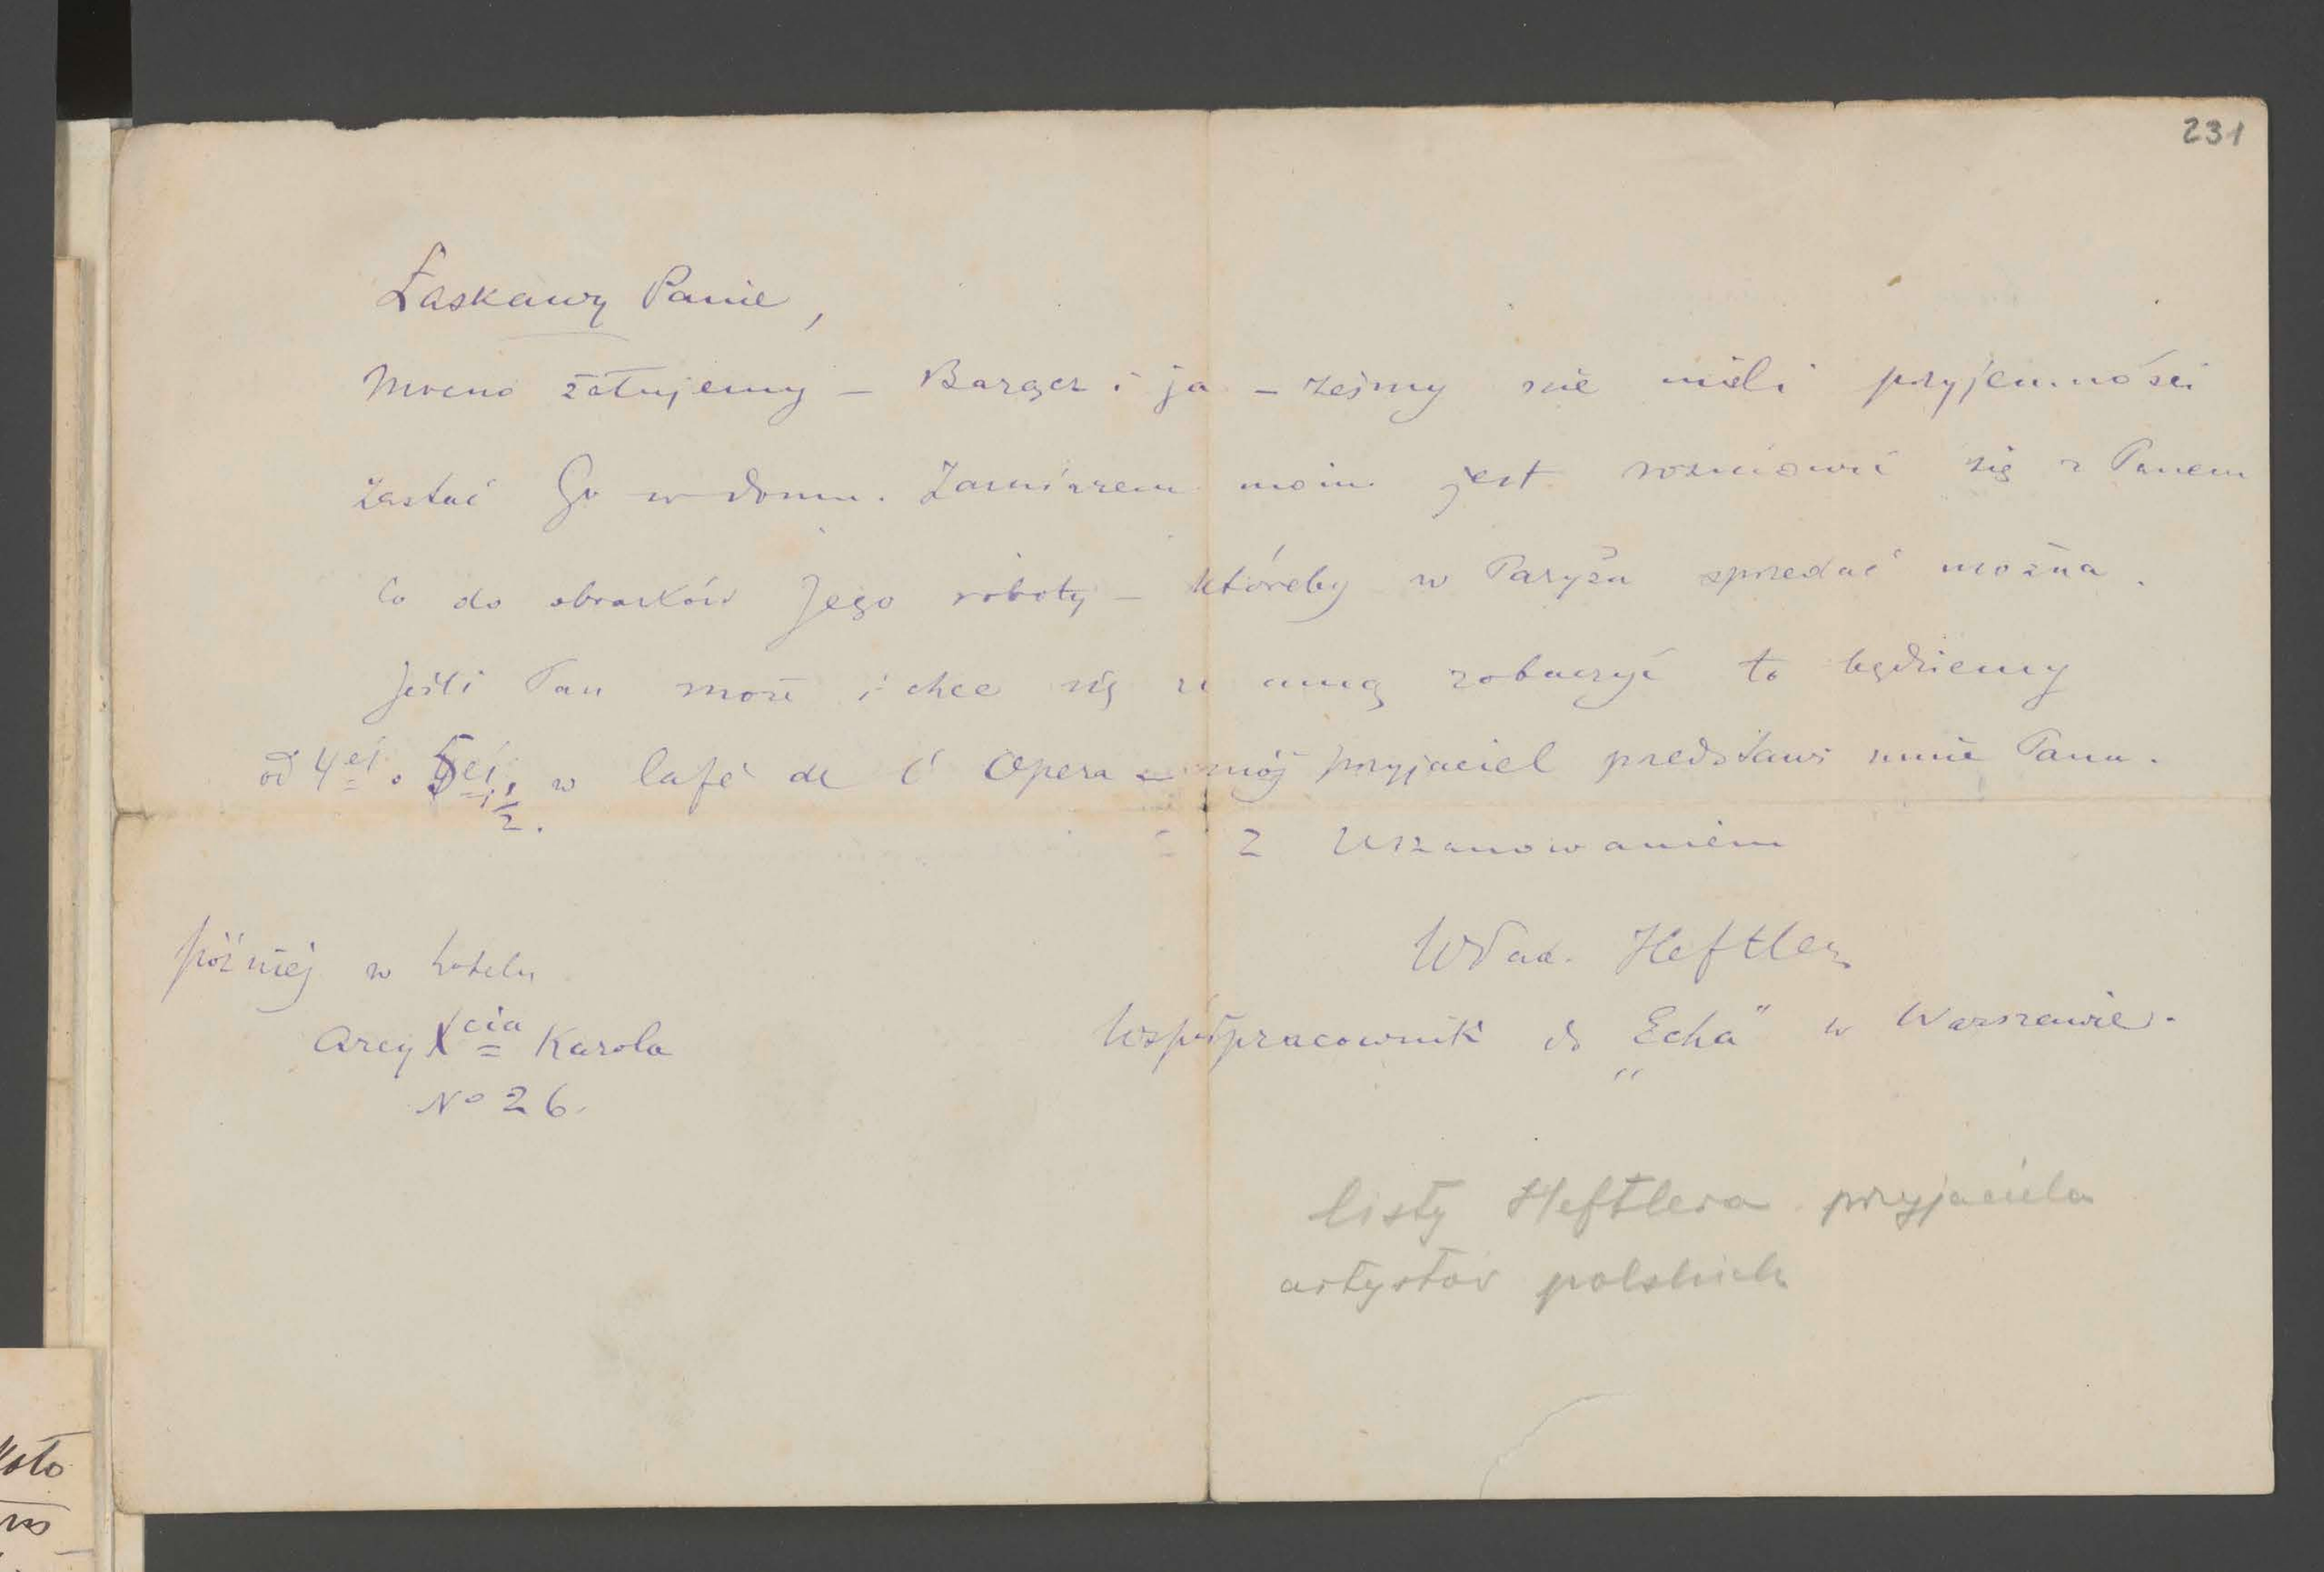 231
Łaskawy Panie,
Mocno żałujemy – Barącz i ja – żeśmy nie mieli przyjemności
zastać Go w domu. Zamiarem moim jest rozmówić się z Panem
co do obrazków Jego roboty – któreby w Paryżu sprzedać można.
Jeśli Pan może i chce się ze mną zobaczyć to będziemy
od 4ej. 5ej ½. w Café de l' Opera – mój przyjaciel przedstawi mnie Panu.
Z Uszanowaniem
Wład. Heftler
Współpracownik do „Echa" w Warszawie.
później w hotelu
Arcy Xcia Karola
No 26.
listy Heftlera przyjaciela
artystów polskich